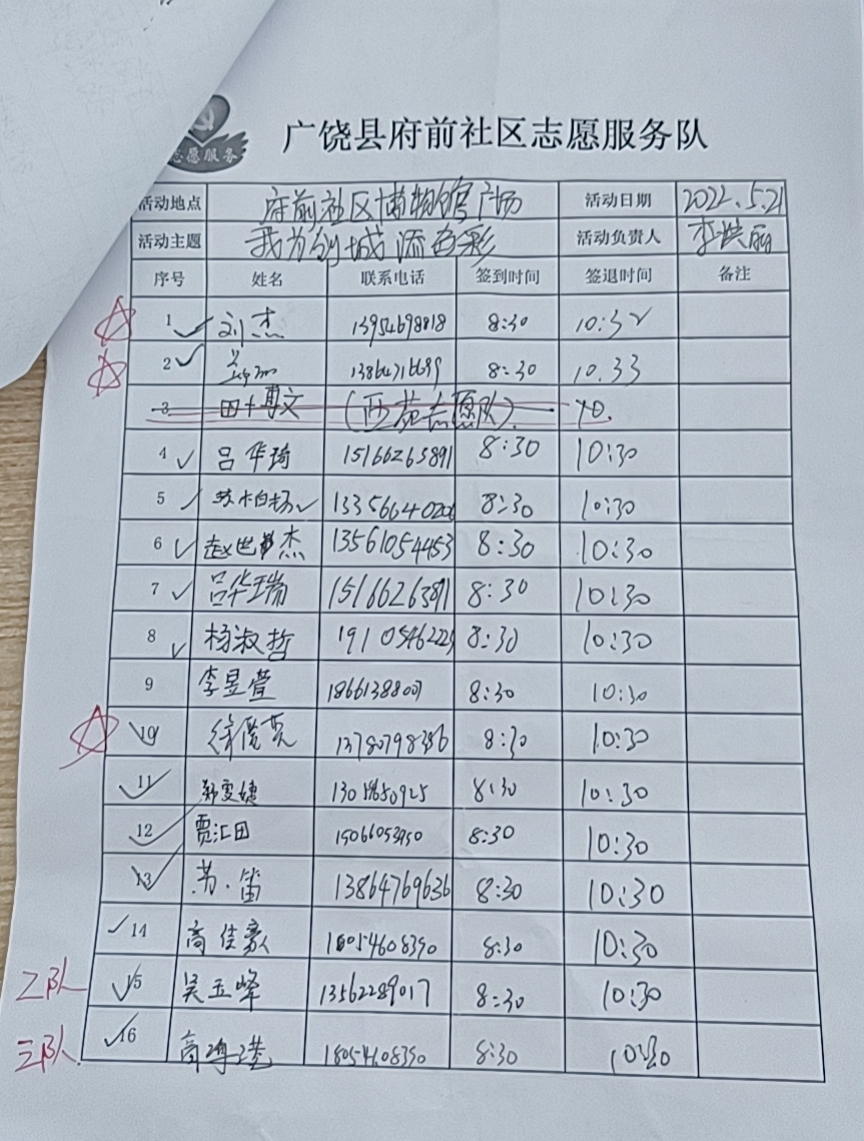 志愿服务
广饶县府前社区志愿服务队
活动地点 府前社区博物馆广场 活动日期 2022.5.21
活动主题 我为创城添色彩 活动负责人 李洪丽
序号 姓名 联系电话 签到时间 签退时间 备注
1 刘杰 13954698818 8:30 10:32
2 8:30 10.33
3 田博文 (西苑志愿队) 10.
4 吕华琦 15166263891 8:30 10:30
5 苏柏杨 1335664020 8:30 10:30
6 赵世杰 13561054453 8:30 10:30
7 吕华瑞 15166263891 8:30 10:30
8 杨淑哲 19105462225 8:30 10:30
9 李昱萱 8:30 10:30
10 徐俊英 13780798386 8:30 10:30
11 郑雯婕 8:30 10:30
12 贾汇田 8:30 10:30
13 苏笛 13864769636 8:30 10:30
14 高佳豪 18054608390 8:30 10:30
二队 15 吴玉峰 13562289017 8:30 10:30
三队 16 高 18054608390 8:30 10:30